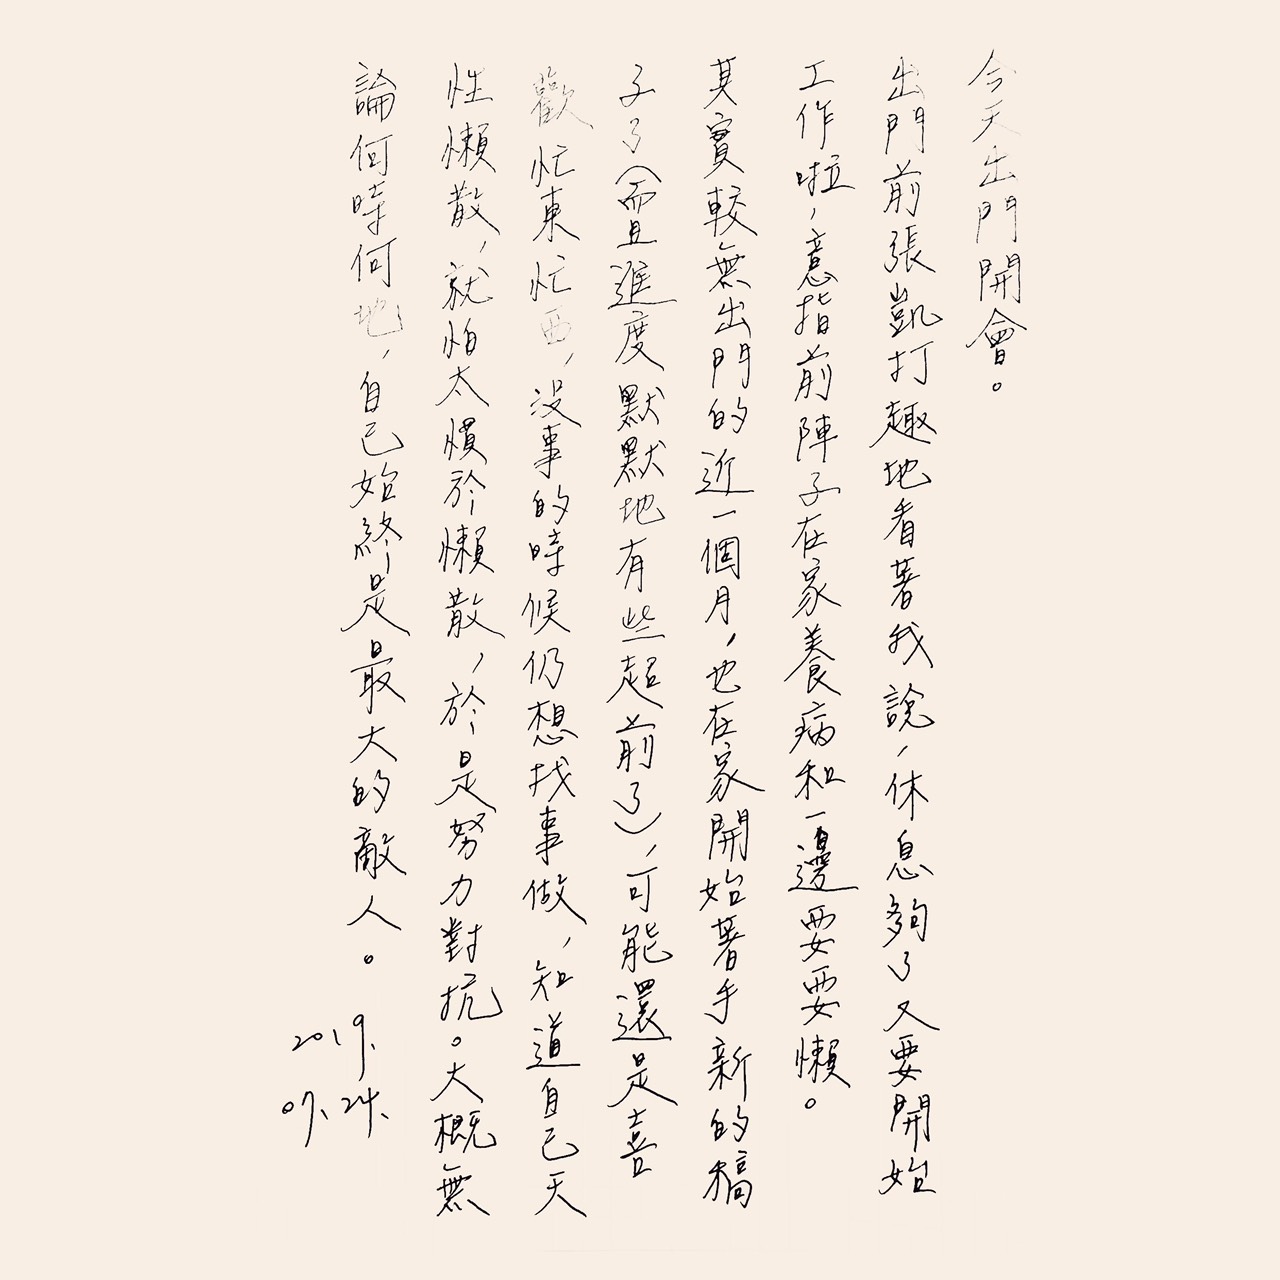 今天出門開會。
出門前張凱打趣地看著我說，休息夠了又要開始
工作啦，意指前陣子在家養病和一邊耍耍懶。
其實較無出門的近一個月，也在家開始著手新的稿
子了（而且進度默默地有些超前了），可能還是喜
歡忙東忙西，沒事的時候仍想找事做，知道自己天
性懶散，就怕太慣於懶散，於是努力對抗。大概無
論何時何地，自己始終是最大的敵人。
2019.
07.24.